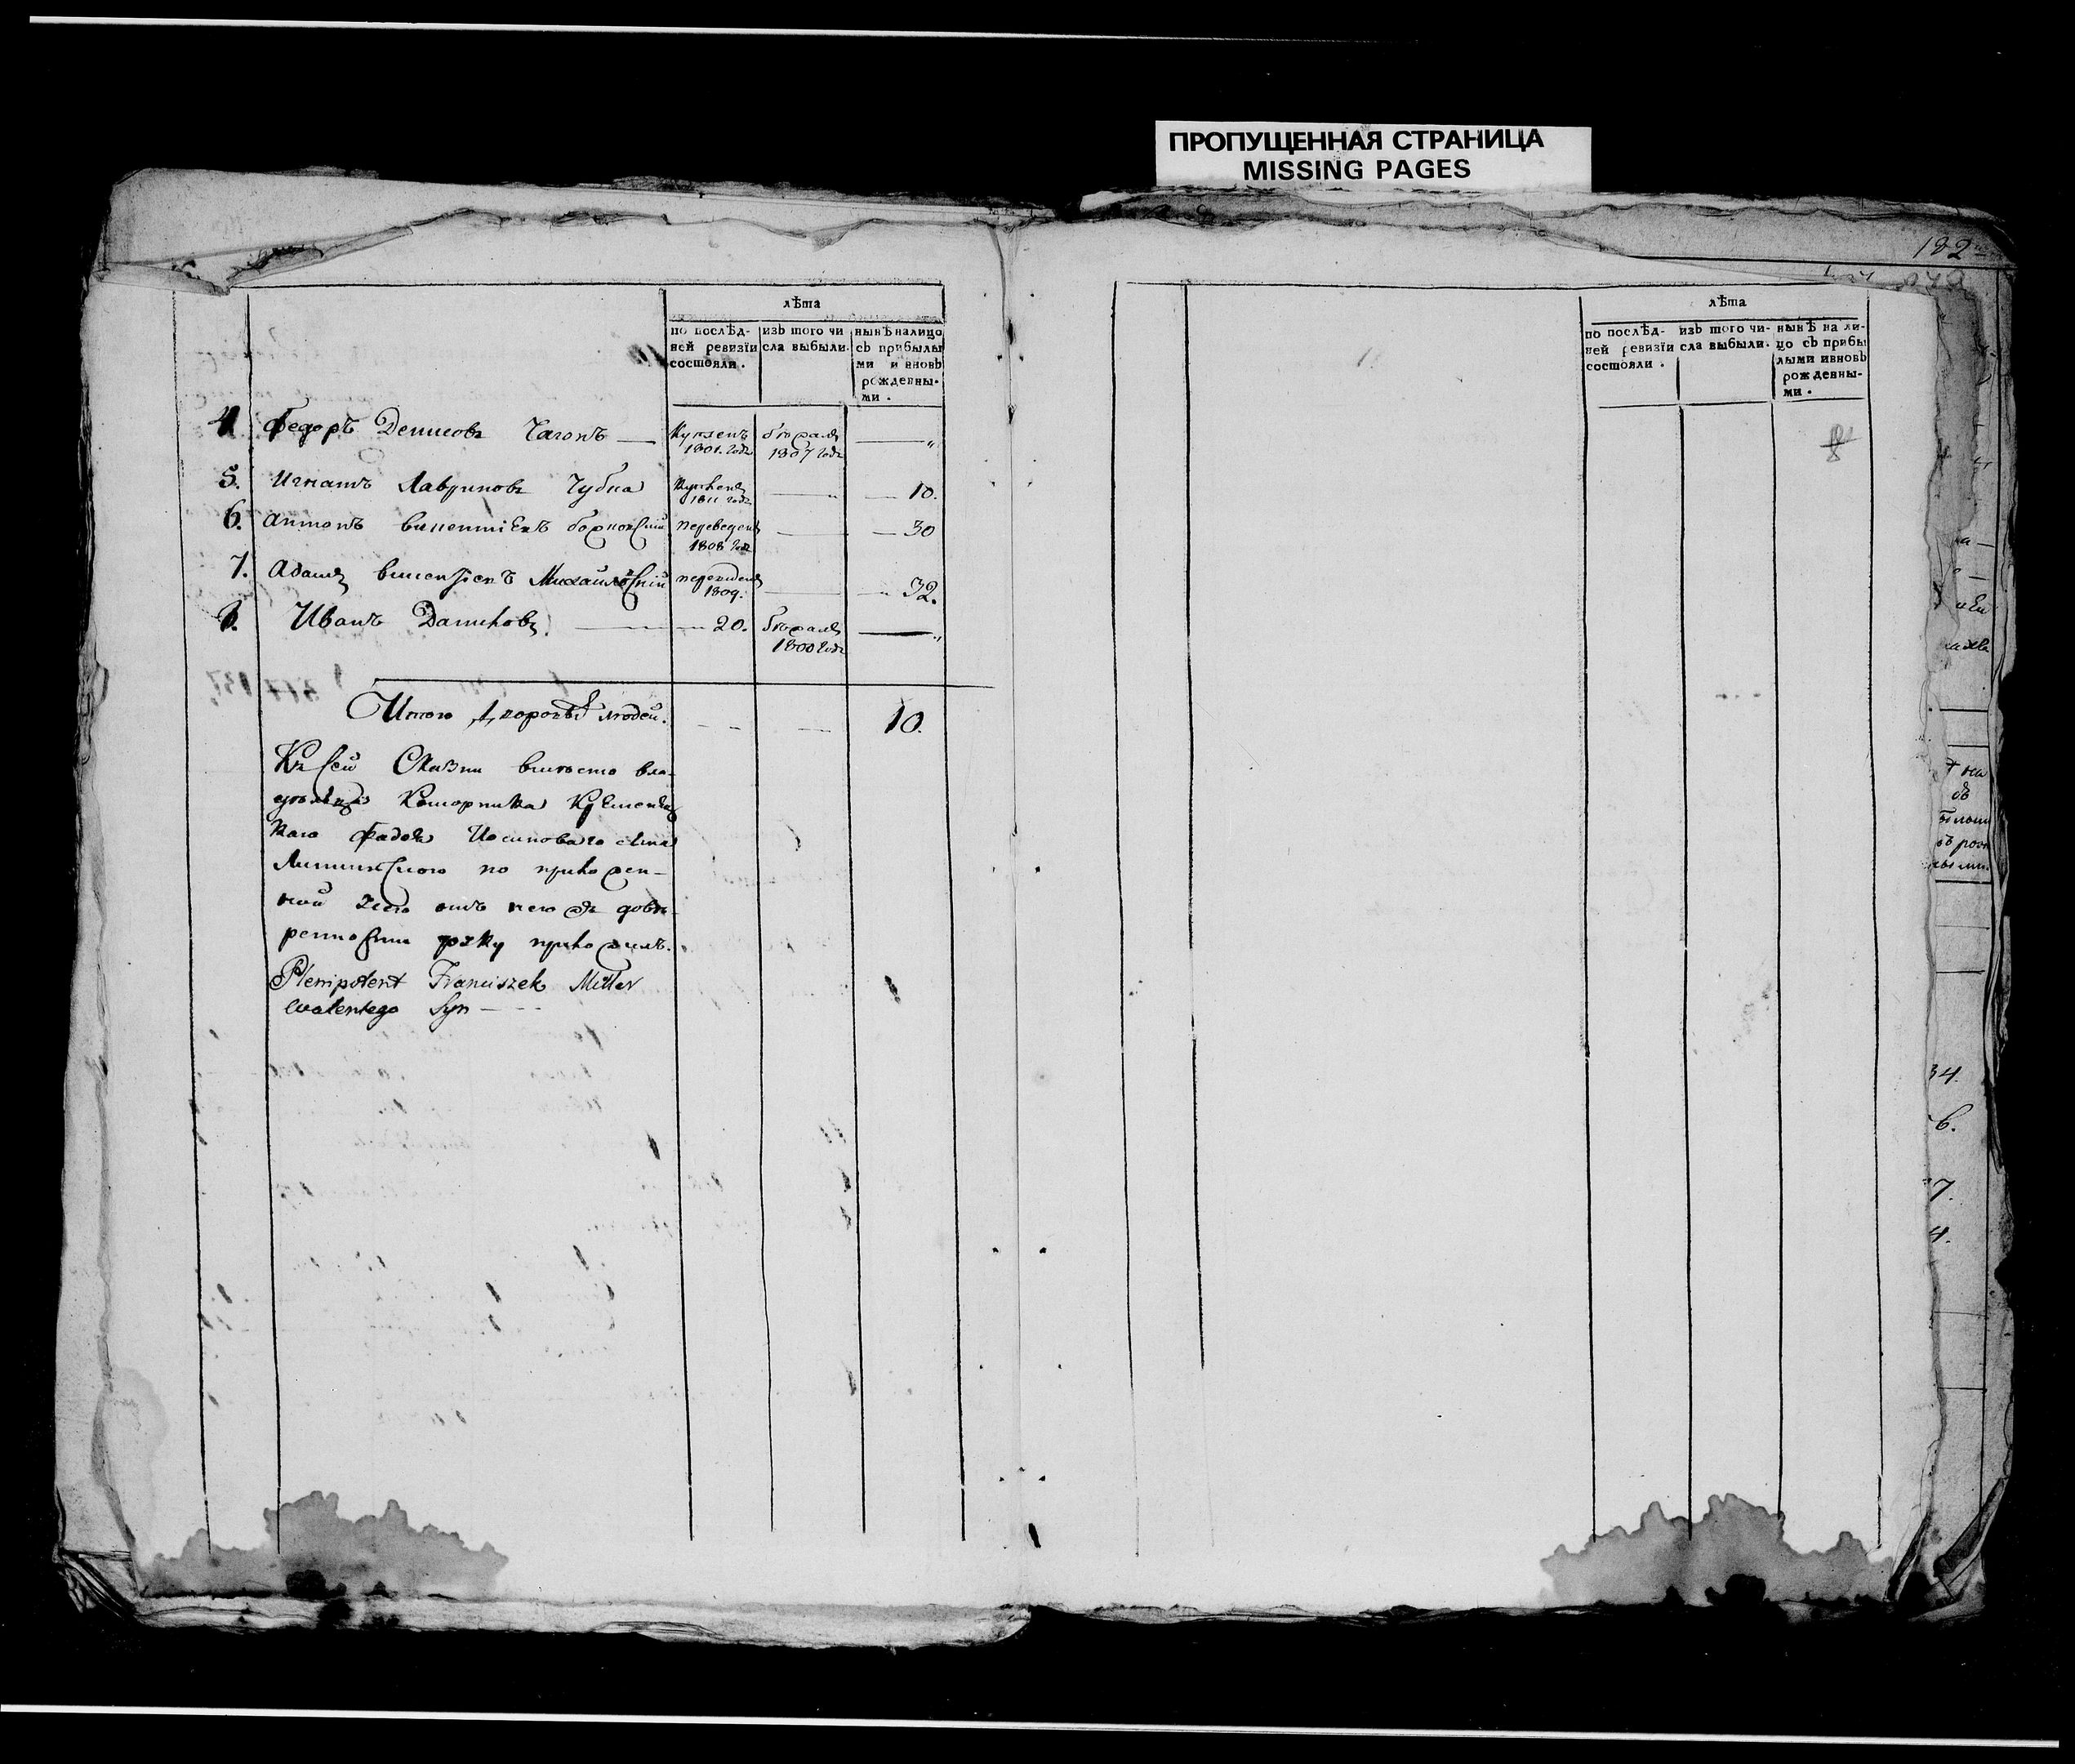 ПРОПУЩЕННАЯ СТРАНИЦА
MISSING PAGES
182
лѣта
по послѣд-
ней ревизіи
состояли.
изъ того чи
сла выбыли.
нынѣ налицо
съ прибылы
ми и вновь
рожденны-
ми.
4. Федоръ Денисовъ Чагонъ — Купленъ 1801. года бѣжалъ 1807 года — „
5. Игнатъ Лавриновъ Чубка Купленъ 1811 года — — 10.
6. Антонъ Викентіевъ переведенъ 1808 года — — 30
7. Адамъ Викентіевъ Михайловскій 1809. — — 32.
8. Иванъ Даниловъ — — 20. бѣжалъ 1800 года — „
Итого Дворовыхъ людей. — — 10.
Къ сей Сказки вмѣсто вла-
дѣльца Коморника Кременец
каго Фадея Иосиповаго сына
по
ной его отъ него въ довѣ-
ренности руку приложилъ.
Plenipotent Franciszek Miller
Walentego Syn
лѣта
по послѣд-
ней ревизіи
состояли.
изъ того чи-
сла выбыли.
нынѣ на ли-
цо съ прибы
лыми ивновь
рожденны-
ми.
8
34.
6.
7.
4.